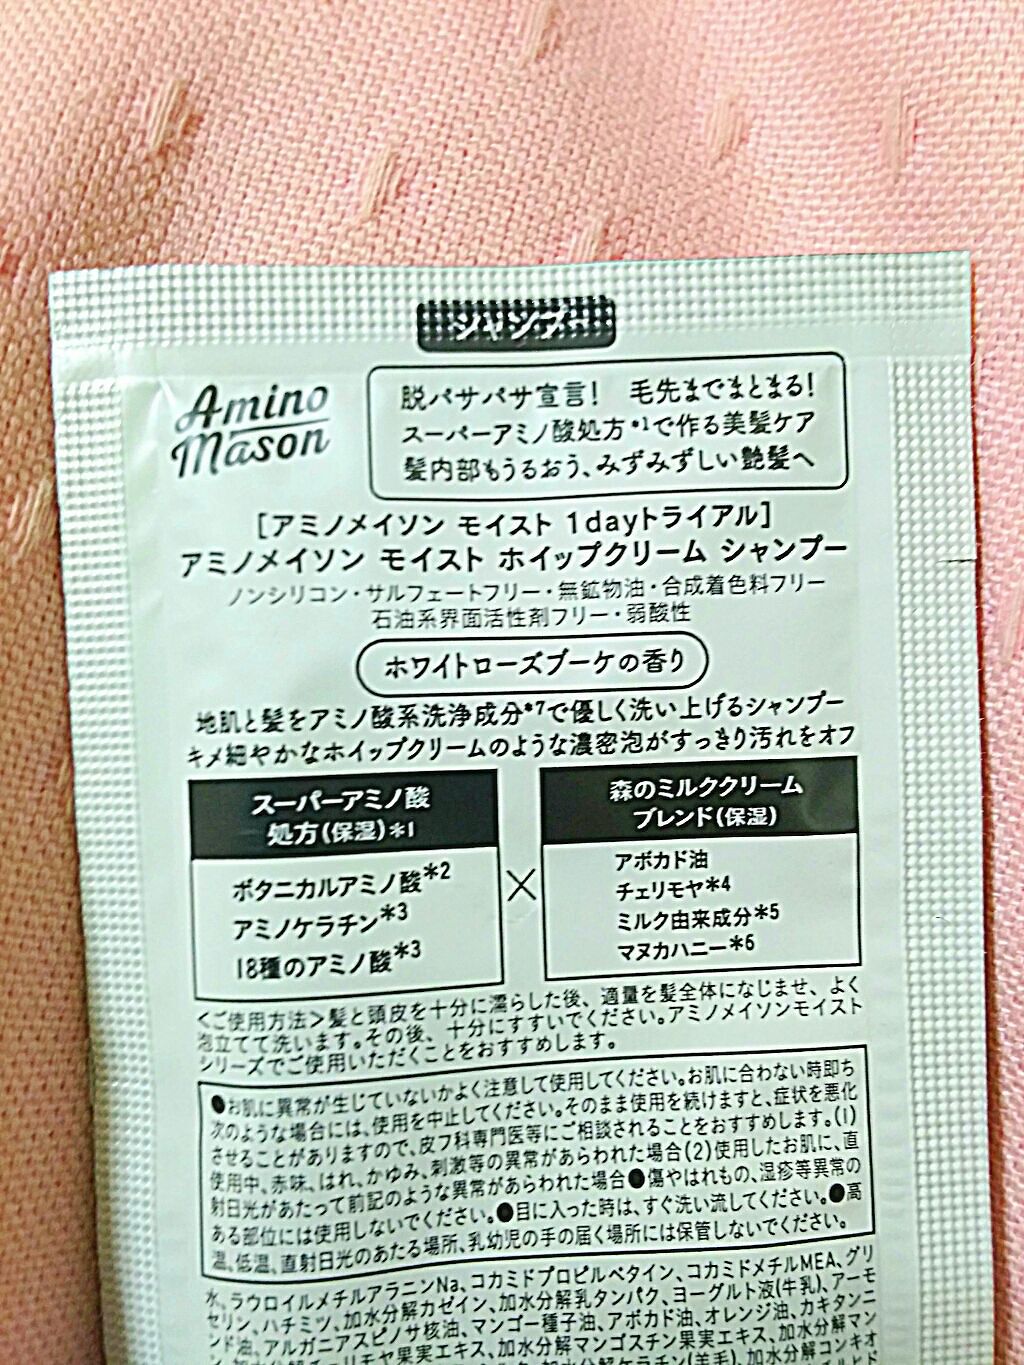 シャンプー
Amino
Mason
脱パサパサ宣言! 毛先までまとまる!
スーパーアミノ酸処方*1で作る美髪ケア
髪内部もうるおう、みずみずしい艶髪へ
[アミノメイソン モイスト 1dayトライアル]
アミノメイソン モイスト ホイップクリーム シャンプー
ノンシリコン・サルフェートフリー・無鉱物油・合成着色料フリー
石油系界面活性剤フリー・弱酸性
ホワイトローズブーケの香り
地肌と髪をアミノ酸系洗浄成分*7で優しく洗い上げるシャンプー
キメ細やかなホイップクリームのような濃密泡がすっきり汚れをオフ
スーパーアミノ酸
処方(保湿)*1
ボタニカルアミノ酸*2
アミノケラチン*3
18種のアミノ酸*3
×
森のミルククリーム
ブレンド(保湿)
アボカド油
チェリモヤ*4
ミルク由来成分*5
マヌカハニー*6
<ご使用方法>髪と頭皮を十分に濡らした後、適量を髪全体になじませ、よく
泡立てて洗います。その後、十分にすすいでください。アミノメイソンモイスト
シリーズでご使用いただくことをおすすめします。
●お肌に異常が生じていないかよく注意して使用してください。お肌に合わない時即ち
次のような場合には、使用を中止してください。そのまま使用を続けますと、症状を悪化
させることがありますので、皮フ科専門医等にご相談されることをおすすめします。(1)
使用中、赤味、はれ、かゆみ、刺激等の異常があらわれた場合(2)使用したお肌に、直
射日光があたって前記のような異常があらわれた場合●傷やはれもの、湿疹等異常の
ある部位には使用しないでください。●目に入った時は、すぐ洗い流してください。●高
温、低温、直射日光のあたる場所、乳幼児の手の届く場所には保管しないでください。
水、ラウロイルメチルアラニンNa、コカミドプロピルベタイン、コカミドメチルMEA、グリ
セリン、ハチミツ、加水分解カゼイン、加水分解乳タンパク、ヨーグルト液(牛乳)、アーモ
ンド油、アルガニアスピノサ核油、マンゴー種子油、アボカド油、オレンジ油、カキタンニ
ン、加水分解チェリモヤ果実エキス、加水分解マンゴスチン果実エキス、加水分解マン
加水分解ケラチン(羊毛)、加水分解コンキオ